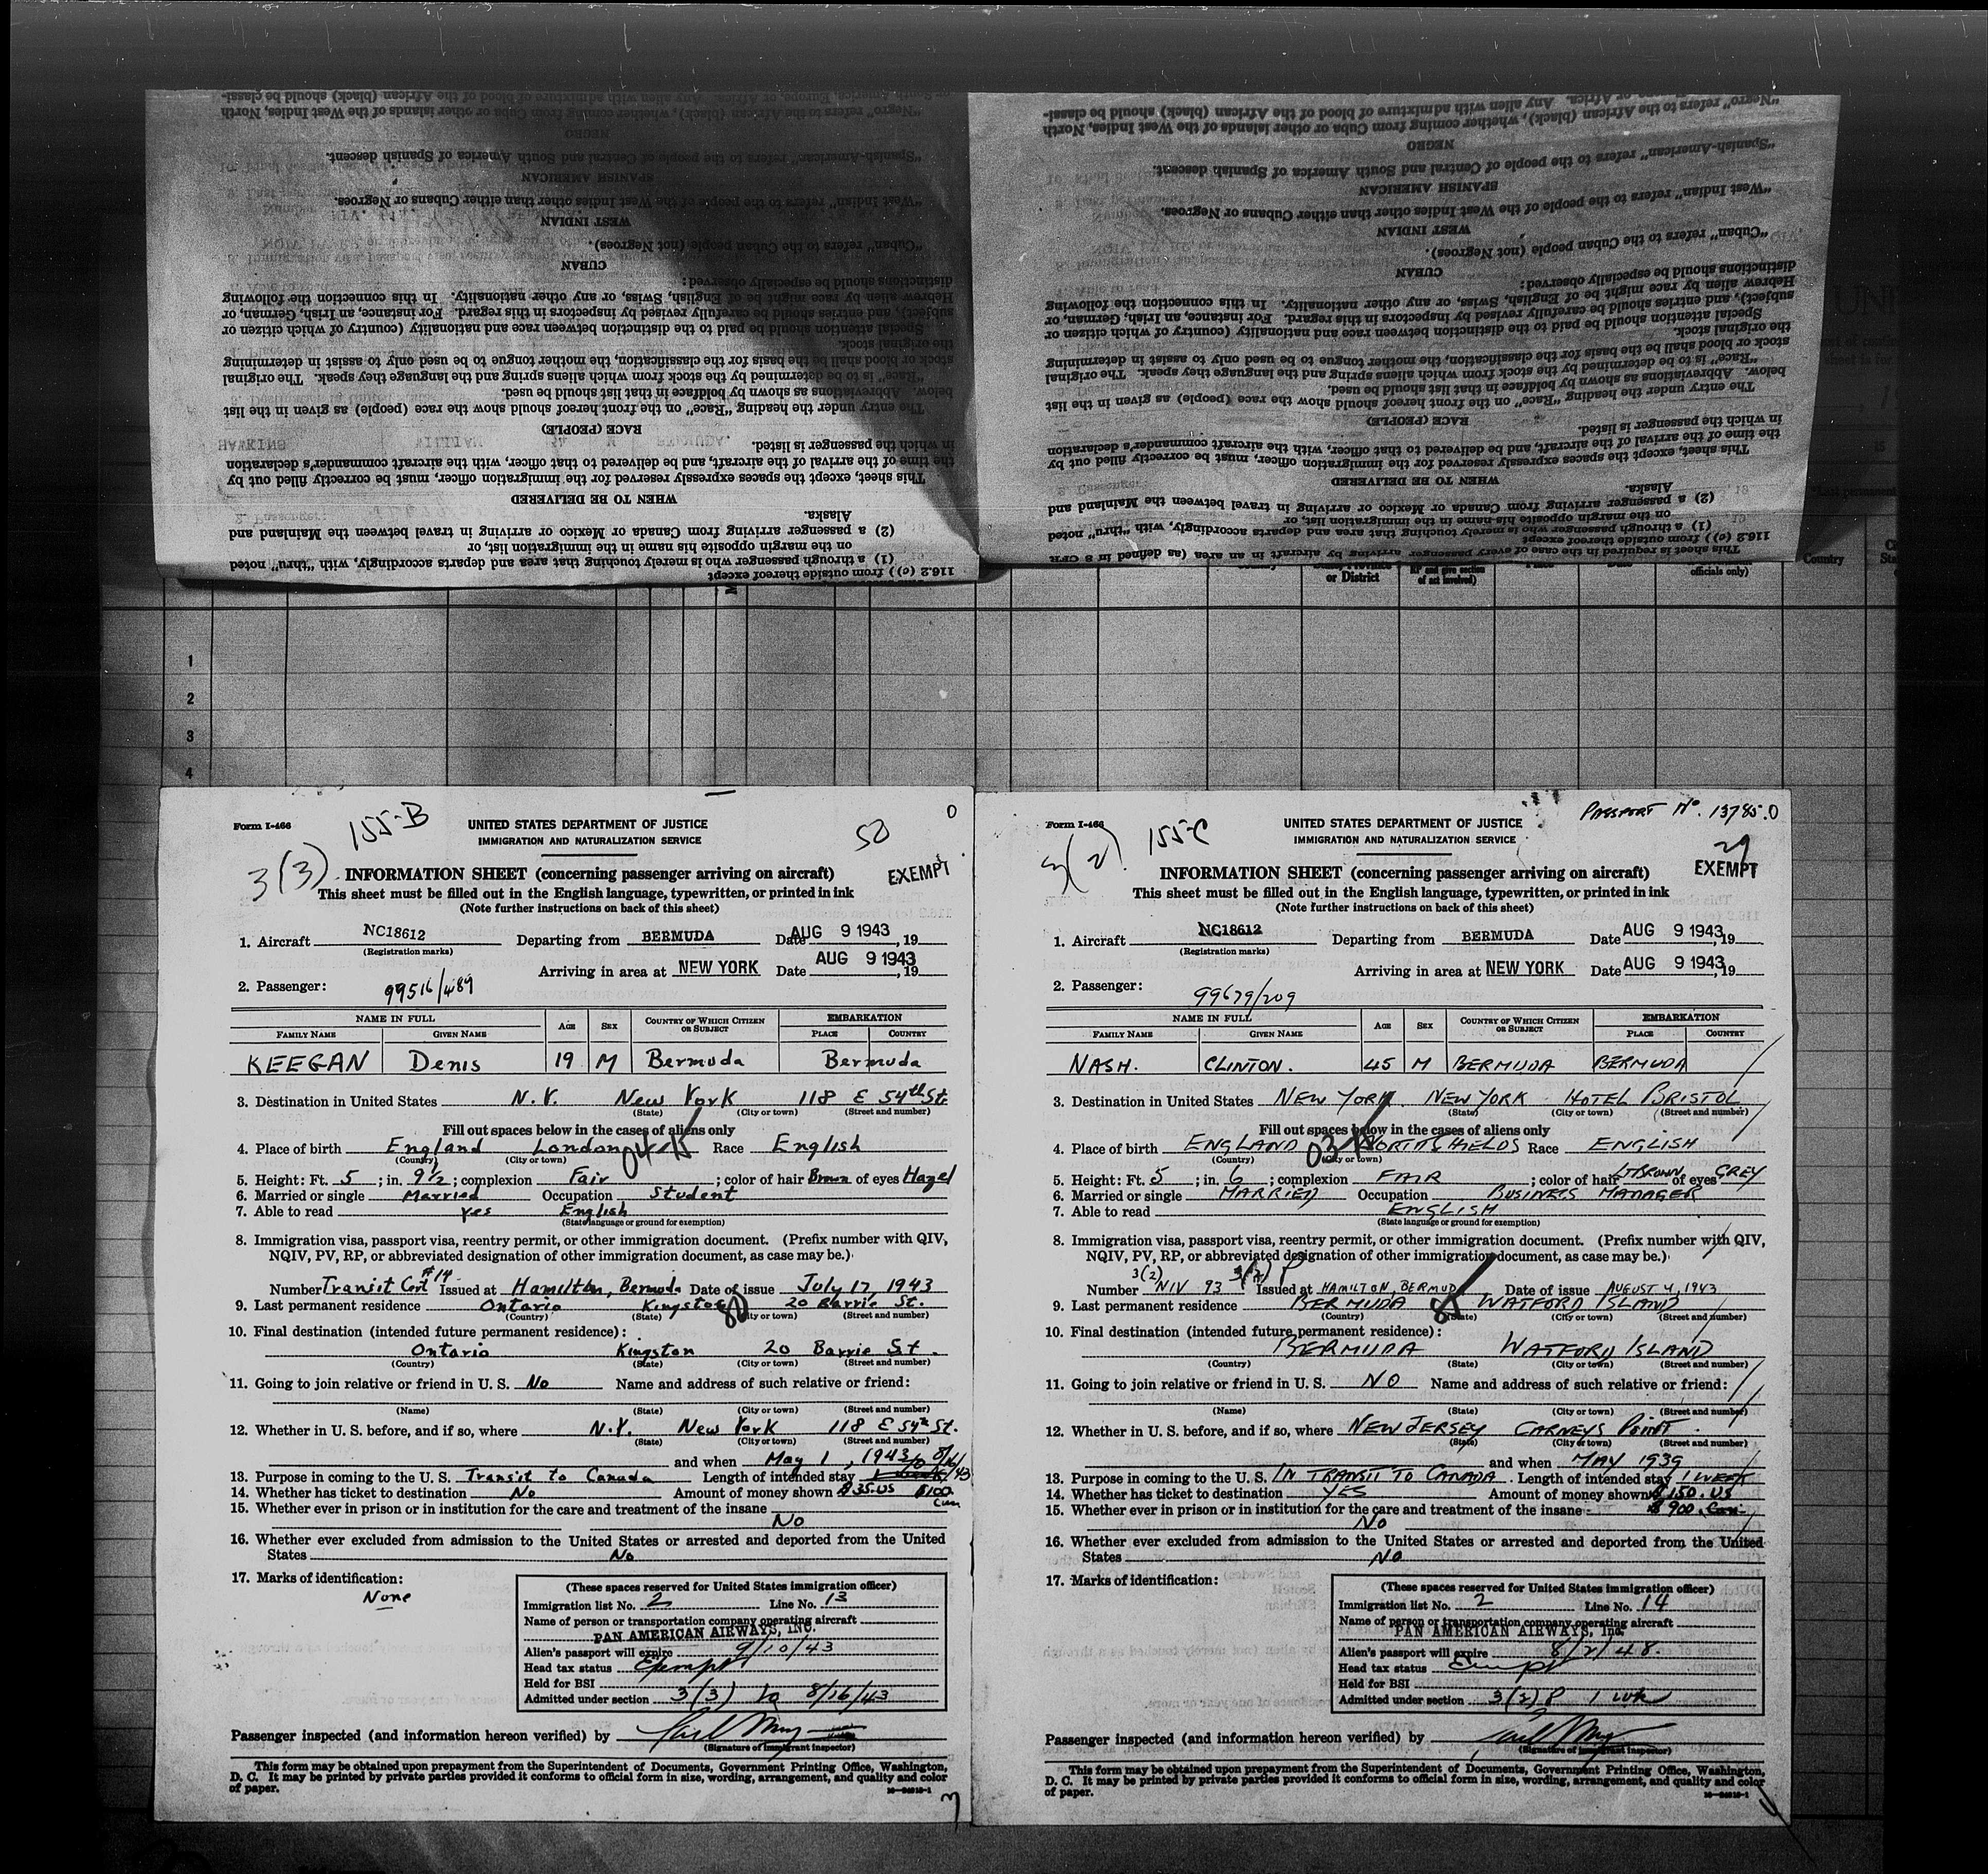 "Negro" refers to the African (black), whether coming from Cuba or other islands of the West Indies, North
NEGRO
"Spanish-American" refers to the people of Central and South America of Spanish descent.
SPANISH AMERICAN
"West Indian" refers to the people of the West Indies other than either Cubans or Negroes.
WEST INDIAN
"Cuban" refers to the Cuban people (not Negroes).
CUBAN
distinctions should be especially observed:
Hebrew alien by race might be of English, Swiss, or any other nationality. In this connection the following
subject), and entries should be carefully revised by inspectors in this regard. For instance, an Irish, German, or
Special attention should be paid to the distinction between race and nationality (country of which citizen or
the original stock.
stock or blood shall be the basis for the classification, the mother tongue to be used only to assist in determining
"Race" is to be determined by the stock from which aliens spring and the language they speak. The original
below. Abbreviations as shown by boldface in that list should be used.
The entry under the heading "Race" on the front hereof should show the race (people) as given in the list
RACE (PEOPLE)
in which the passenger is listed.
the time of the arrival of the aircraft, and be delivered to that officer, with the aircraft commander's declaration
This sheet, except the spaces expressly reserved for the immigration officer, must be correctly filled out by
WHEN TO BE DELIVERED
Alaska.
(2) a passenger arriving from Canada or Mexico or arriving in travel between the Mainland and
on the margin opposite his name in the immigration list, or
(1) a through passenger who is merely touching that area and departs accordingly, with "thru" noted
116.2 (c)) from outside thereof except
"Negro" refers to the African (black), whether coming from Cuba or other islands of the West Indies, North
America, Europe, or Africa. Any alien with admixture of blood of the African (black) should be classi-
NEGRO
"Spanish-American" refers to the people of Central and South America of Spanish descent.
SPANISH AMERICAN
"West Indian" refers to the people of the West Indies other than either Cubans or Negroes.
WEST INDIAN
"Cuban" refers to the Cuban people (not Negroes).
CUBAN
distinctions should be especially observed:
Hebrew alien by race might be of English, Swiss, or any other nationality. In this connection the following
subject), and entries should be carefully revised by inspectors in this regard. For instance, an Irish, German, or
Special attention should be paid to the distinction between race and nationality (country of which citizen or
the original stock.
stock or blood shall be the basis for the classification, the mother tongue to be used only to assist in determining
"Race" is to be determined by the stock from which aliens spring and the language they speak. The original
below. Abbreviations as shown by boldface in that list should be used.
The entry under the heading "Race" on the front hereof should show the race (people) as given in the list
RACE (PEOPLE)
in which the passenger is listed.
the time of the arrival of the aircraft, and be delivered to that officer, with the aircraft commander's declaration
This sheet, except the spaces expressly reserved for the immigration officer, must be correctly filled out by
WHEN TO BE DELIVERED
Alaska.
(2) a passenger arriving from Canada or Mexico or arriving in travel between the Mainland and
on the margin opposite his name in the immigration list, or
(1) a through passenger who is merely touching that area and departs accordingly, with "thru" noted
116.2 (c)) from outside thereof except
This sheet is required in the case of every passenger arriving by aircraft in an area (as defined in 8 CFR
or District
officials only)
Country
1
2
3
4
Form I-466
155-B
50
0
3(3)
UNITED STATES DEPARTMENT OF JUSTICE
IMMIGRATION AND NATURALIZATION SERVICE
EXEMPT
INFORMATION SHEET (concerning passenger arriving on aircraft)
This sheet must be filled out in the English language, typewritten, or printed in ink
(Note further instructions on back of this sheet)
1. Aircraft NC18612 Departing from BERMUDA Date AUG 9 1943, 19
(Registration marks)
Arriving in area at NEW YORK Date AUG 9 1943, 19
2. Passenger: 99516/489
NAME IN FULL AGE SEX COUNTRY OF WHICH CITIZEN OR SUBJECT EMBARKATION
FAMILY NAME GIVEN NAME PLACE COUNTRY
KEEGAN Denis 19 M Bermuda Bermuda
3. Destination in United States N.Y. New York 118 E 54th St.
(State) (City or town) (Street and number)
Fill out spaces below in the cases of aliens only
4. Place of birth England London 04 Race English
(Country) (City or town)
5. Height: Ft. 5 ; in. 9½ ; complexion Fair ; color of hair Brown of eyes Hazel
6. Married or single Married Occupation Student
7. Able to read yes English
(State language or ground for exemption)
8. Immigration visa, passport visa, reentry permit, or other immigration document. (Prefix number with QIV,
NQIV, PV, RP, or abbreviated designation of other immigration document, as case may be.)
Number Transit Cert #14 Issued at Hamilton, Bermuda Date of issue July 17, 1943
9. Last permanent residence Ontario Kingston 80 20 Barrie St.
(Country) (State) (City or town) (Street and number)
10. Final destination (intended future permanent residence):
Ontario Kingston 20 Barrie St.
(Country) (State) (City or town) (Street and number)
11. Going to join relative or friend in U. S. No Name and address of such relative or friend:
(Name) (State) (City or town) (Street and number)
12. Whether in U. S. before, and if so, where N.Y. New York 118 E 54th St.
(State) (City or town) (Street and number)
and when May 1, 1943
13. Purpose in coming to the U. S. Transit to Canada Length of intended stay 1 week to 8/16/43
14. Whether has ticket to destination No Amount of money shown $35.US $100 Can
15. Whether ever in prison or in institution for the care and treatment of the insane
No
16. Whether ever excluded from admission to the United States or arrested and deported from the United
States No
17. Marks of identification:
None
(These spaces reserved for United States immigration officer)
Immigration list No. 2 Line No. 13
Name of person or transportation company operating aircraft
PAN AMERICAN AIRWAYS, INC.
Alien's passport will expire 9/10/43
Head tax status Exempt
Held for BSI
Admitted under section 3(3) to 8/16/43
Passenger inspected (and information hereon verified) by
(Signature of immigrant inspector)
This form may be obtained upon prepayment from the Superintendent of Documents, Government Printing Office, Washington,
D. C. It may be printed by private parties provided it conforms to official form in size, wording, arrangement, and quality and color
of paper.
Form I-466
155-C
PASSPORT No. 13785.0
3(2)
29
UNITED STATES DEPARTMENT OF JUSTICE
IMMIGRATION AND NATURALIZATION SERVICE
EXEMPT
INFORMATION SHEET (concerning passenger arriving on aircraft)
This sheet must be filled out in the English language, typewritten, or printed in ink
(Note further instructions on back of this sheet)
1. Aircraft NC18612 Departing from BERMUDA Date AUG 9 1943, 19
(Registration marks)
Arriving in area at NEW YORK Date AUG 9 1943, 19
2. Passenger: 99679/209
NAME IN FULL AGE SEX COUNTRY OF WHICH CITIZEN OR SUBJECT EMBARKATION
FAMILY NAME GIVEN NAME PLACE COUNTRY
NASH. CLINTON. 45 M BERMUDA BERMUDA
3. Destination in United States NEW YORK NEW YORK HOTEL BRISTOL
(State) (City or town) (Street and number)
Fill out spaces below in the cases of aliens only
4. Place of birth ENGLAND 03 NORTH SHIELDS Race ENGLISH
(Country) (City or town)
5. Height: Ft. 5 ; in. 6 ; complexion FAIR ; color of hair LT BROWN of eyes GREY
6. Married or single MARRIED Occupation BUSINESS MANAGER
7. Able to read ENGLISH
(State language or ground for exemption)
8. Immigration visa, passport visa, reentry permit, or other immigration document. (Prefix number with QIV,
NQIV, PV, RP, or abbreviated designation of other immigration document, as case may be.)
3(2) 3(2) P
Number NIV 93 Issued at HAMILTON, BERMUDA Date of issue AUGUST 4, 1943
9. Last permanent residence BERMUDA WATFORD ISLAND
(Country) (State) (City or town) (Street and number)
10. Final destination (intended future permanent residence):
BERMUDA WATFORD ISLAND
(Country) (State) (City or town) (Street and number)
11. Going to join relative or friend in U. S. NO Name and address of such relative or friend:
(Name) (State) (City or town) (Street and number)
12. Whether in U. S. before, and if so, where NEW JERSEY CARNEYS POINT.
(State) (City or town) (Street and number)
and when MAY 1939
13. Purpose in coming to the U. S. IN TRANSIT TO CANADA. Length of intended stay 1 WEEK
14. Whether has ticket to destination YES Amount of money shown $150. US
15. Whether ever in prison or in institution for the care and treatment of the insane $900. Can.
NO
16. Whether ever excluded from admission to the United States or arrested and deported from the United
States NO
17. Marks of identification:
(These spaces reserved for United States immigration officer)
Immigration list No. 2 Line No. 14
Name of person or transportation company operating aircraft
PAN AMERICAN AIRWAYS, Inc.
Alien's passport will expire 8/2/48.
Head tax status Exempt
Held for BSI
Admitted under section 3(2) P 1 wk
Passenger inspected (and information hereon verified) by
(Signature of immigrant inspector)
This form may be obtained upon prepayment from the Superintendent of Documents, Government Printing Office, Washington,
D. C. It may be printed by private parties provided it conforms to official form in size, wording, arrangement, and quality and color
of paper.